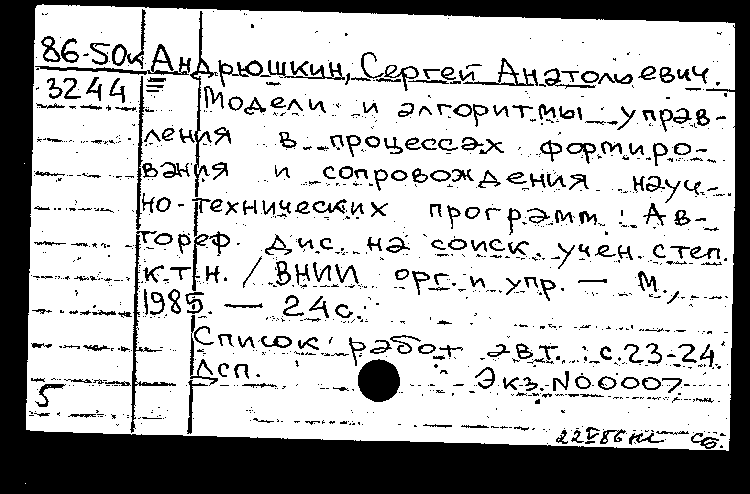 86-50к Андрюшкин, Сергей Анатольевич.
3244 Модели и алгоритмы управ-
ления в процессах формиро-
вания и сопровождения науч-
но-технических программ : Ав-
тореф. дис. на соиск. учен. степ.
к.т.н. / ВНИИ орг. и упр. — М.,
1985. — 24с.
Список работ авт. : с.23-24
Дсп. Экз. N00007
5